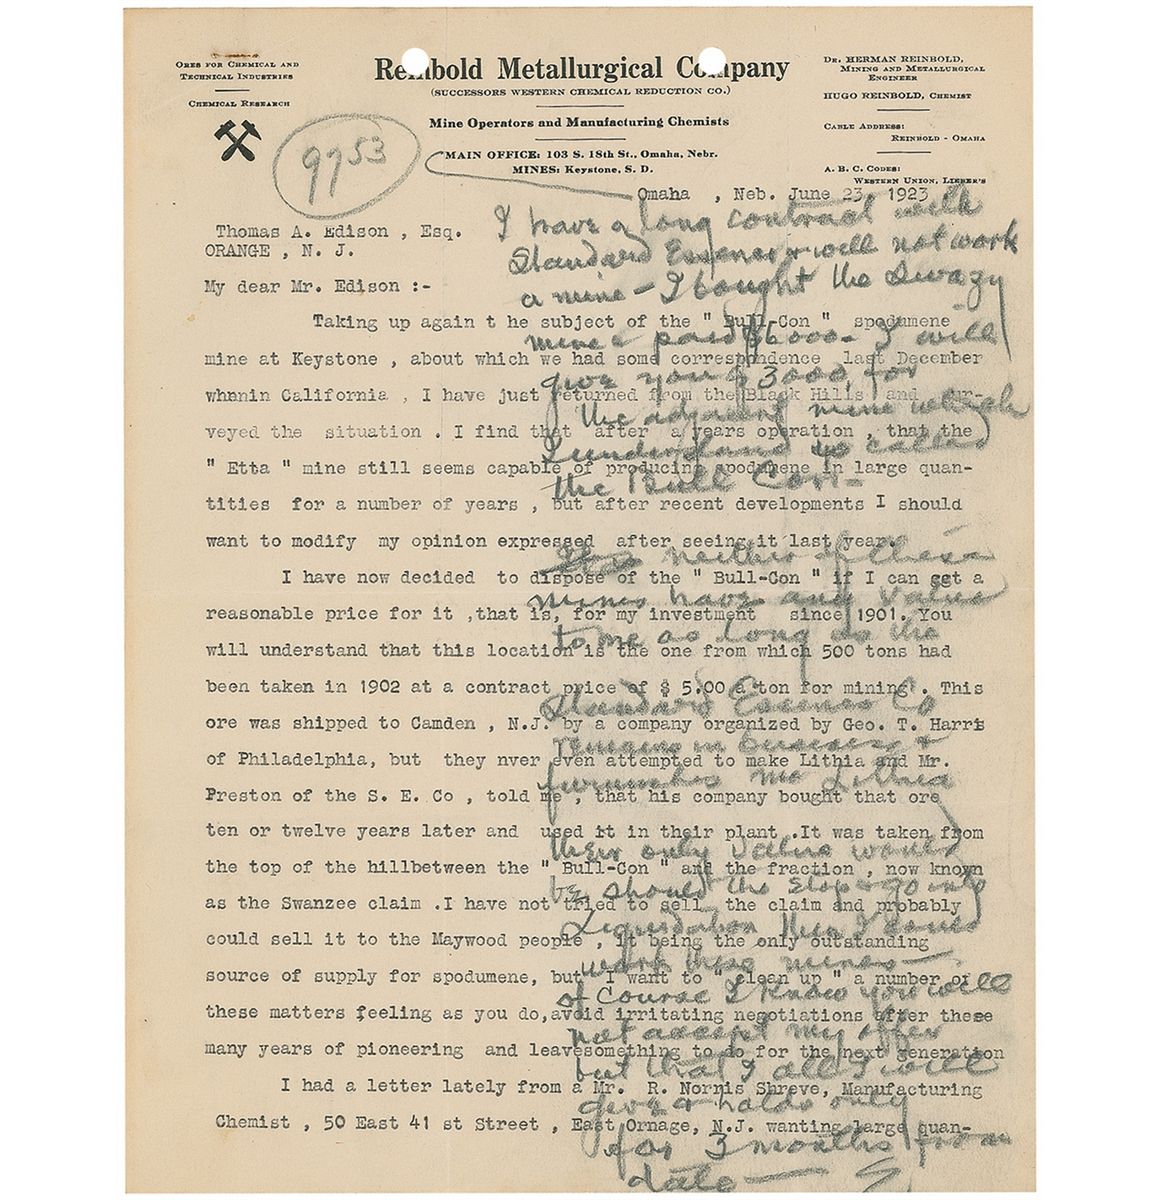 ORES FOR CHEMICAL AND
TECHNICAL INDUSTRIES
CHEMICAL RESEARCH
Reinbold Metallurgical Company
(SUCCESSORS WESTERN CHEMICAL REDUCTION CO.)
Mine Operators and Manufacturing Chemists
MAIN OFFICE: 103 S. 18th St., Omaha, Nebr.
MINES: Keystone, S. D.
DR. HERMAN REINBOLD,
MINING AND METALLURGICAL
ENGINEER
HUGO REINBOLD, CHEMIST
CABLE ADDRESS:
REINBOLD - OMAHA
A. B. C. CODES:
WESTERN UNION, LIEBER'S
9753
Omaha , Neb. June 23, 1923
Thomas A. Edison , Esq.
ORANGE , N. J.
My dear Mr. Edison :-
Taking up again t he subject of the " Bull-Con " spodumene
mine at Keystone , about which we had some correspondence last December
whnin California , I have just returned from the Black Hills and sur-
veyed the situation . I find that after a years operation , that the
" Etta " mine still seems capable of producing spodumene in large quan-
tities for a number of years , but after recent developments I should
want to modify my opinion expressed after seeing it last year.
I have now decided to dispose of the " Bull-Con " if I can get a
reasonable price for it ,that is, for my investment since 1901. You
will understand that this location is the one from which 500 tons had
been taken in 1902 at a contract price of $ 5.00 a ton for mining . This
ore was shipped to Camden , N.J. by a company organized by Geo. T. Harris
of Philadelphia, but they nver even attempted to make Lithia and Mr.
Preston of the S. E. Co , told me , that his company bought that ore
ten or twelve years later and used it in their plant .It was taken from
the top of the hillbetween the " Bull-Con " and the fraction , now known
as the Swanzee claim .I have not tried to sell the claim and probably
could sell it to the Maywood people , it being the only outstanding
source of supply for spodumene, but I want to " clean up " a number of
these matters feeling as you do,avoid irritating negotiations after these
many years of pioneering and leavesomething to do for the next generation
I had a letter lately from a Mr. R. Norris Shreve, Manufacturing
Chemist , 50 East 41 st Street , East Ornage, N.J. wanting large quan-
I have a long contract with
Standard Essence & will not work
a mine - I bought the Swazy
mine & paid $6000 - I will
give you $3000, for
the adjacent mine which
I understand is called
the Bull Con -
neither of these
mines have any value
to me as long as the
Standard Essence Co
remains in business &
furnishes me Lithia
their only value would
be should the stop & go into
Liquidation then I could
work these mines -
of Course I know you will
not accept my offer
but that I all I will
give & holds only
for 3 months from
date -